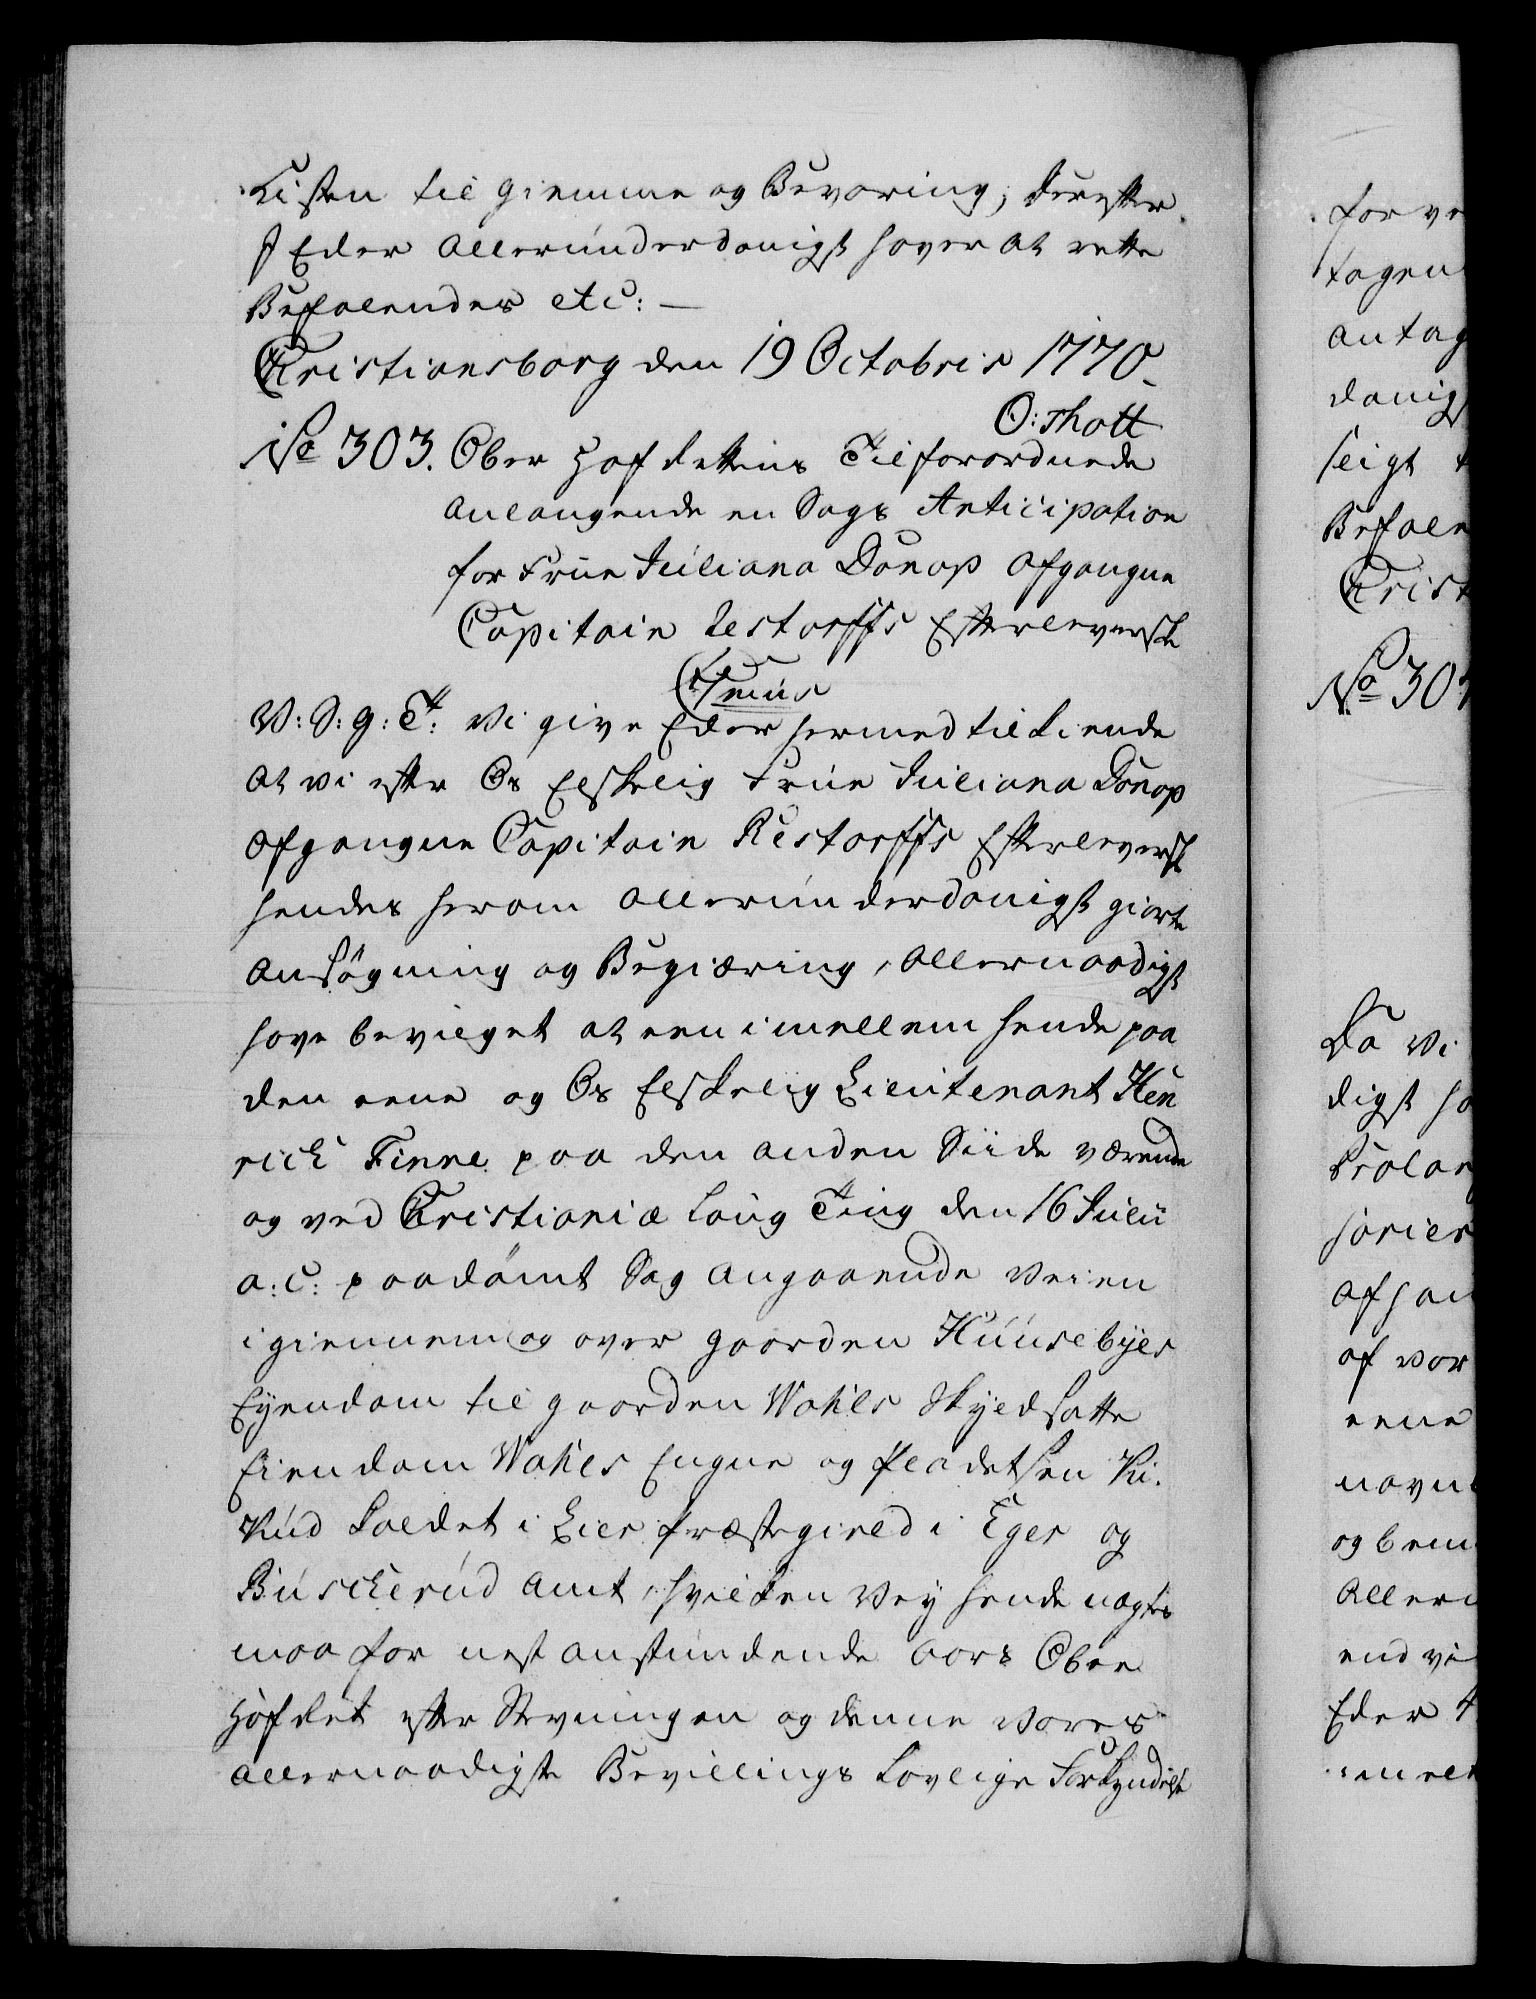 Kisten til giemme og Bevaring; derefter
I Eder Allerunderdanigst haver at rette
Befalendes etc: —
Christiansborg den 19 Octobris 1770.
O: Thott
No 303. Ober Hof Rettens Tilforordnede
anlangende en Sags Anticipation
for Frue Juliana Donop Afgangne
Capitain Restorffs Efterleverske
V: S: G: T: Vi give Eder hermed tilkiende
at vi efter Os Elskelig Frue Juliana Donop
afgangne Capitain Restorffs Efterleversk
hendes herom allerunderdanigst giorte
Ansøgning og Begiæring, Allernaadigst
have bevilget at een imellem hende paa
den eene og Os Elskelig Lieutenant Hen
rich Finne paa den anden Siide værende
og ved Christianiæ Laug Ting den 16 Julii
a: c: paadømt Sag angaaende Veien
igiennem og over gaarden Huusebyes
Eyendom til gaarden Wahls Skyldsatte
Eiendom Wahls Engne og Pladetsen
kaldet i Lier Præstegield i Eger og
Buscherud Amt, hvilken Vey hende nægtes
maa for nest anstundende Aars Ober
Hof Ret efter Stevningen og denne Vores
allernaadigste Bevillings Lovlige Forkyndelse
for ve
tagen
antag
danigs
leigt
Befale
Christ
No 30
Da Vi
digst ha
af
af vor
eene
navn
og bem
Aller
end vi
Eder